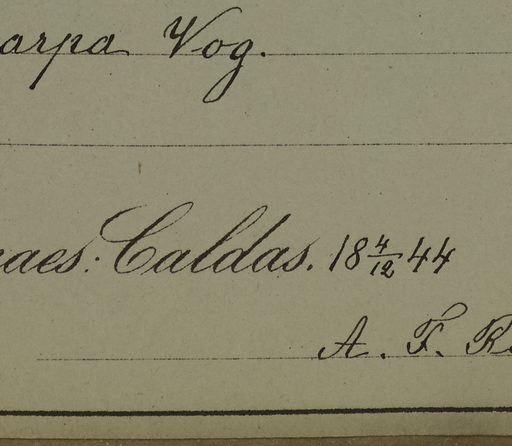 arpa Vog.
naes: Caldas. 18 4/12 44
A. F. R